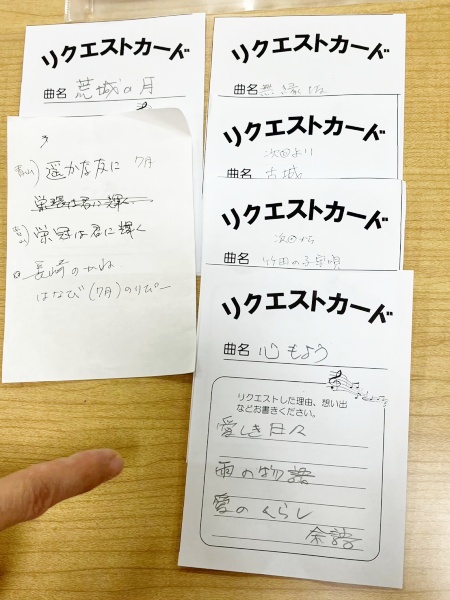 リクエストカード
曲名 荒城の月
リクエストカード
曲名 無縁坂
リクエストカード
次回より
古城
リクエストカード
次回から
竹田の子守唄
リクエストカード
曲名 心もよう
リクエストした理由、想い出
などお書きください。
愛しき日々
雨の物語
愛のくらし
遥かな友に 7月
栄冠は君に輝く
栄冠は君に輝く
長崎のかね
はなび(7月)のリピー